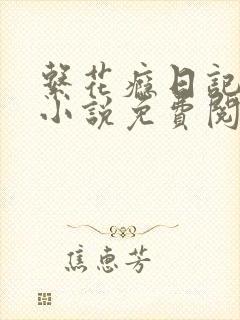 繫花癡日記
小說免費閱
焦惠芳